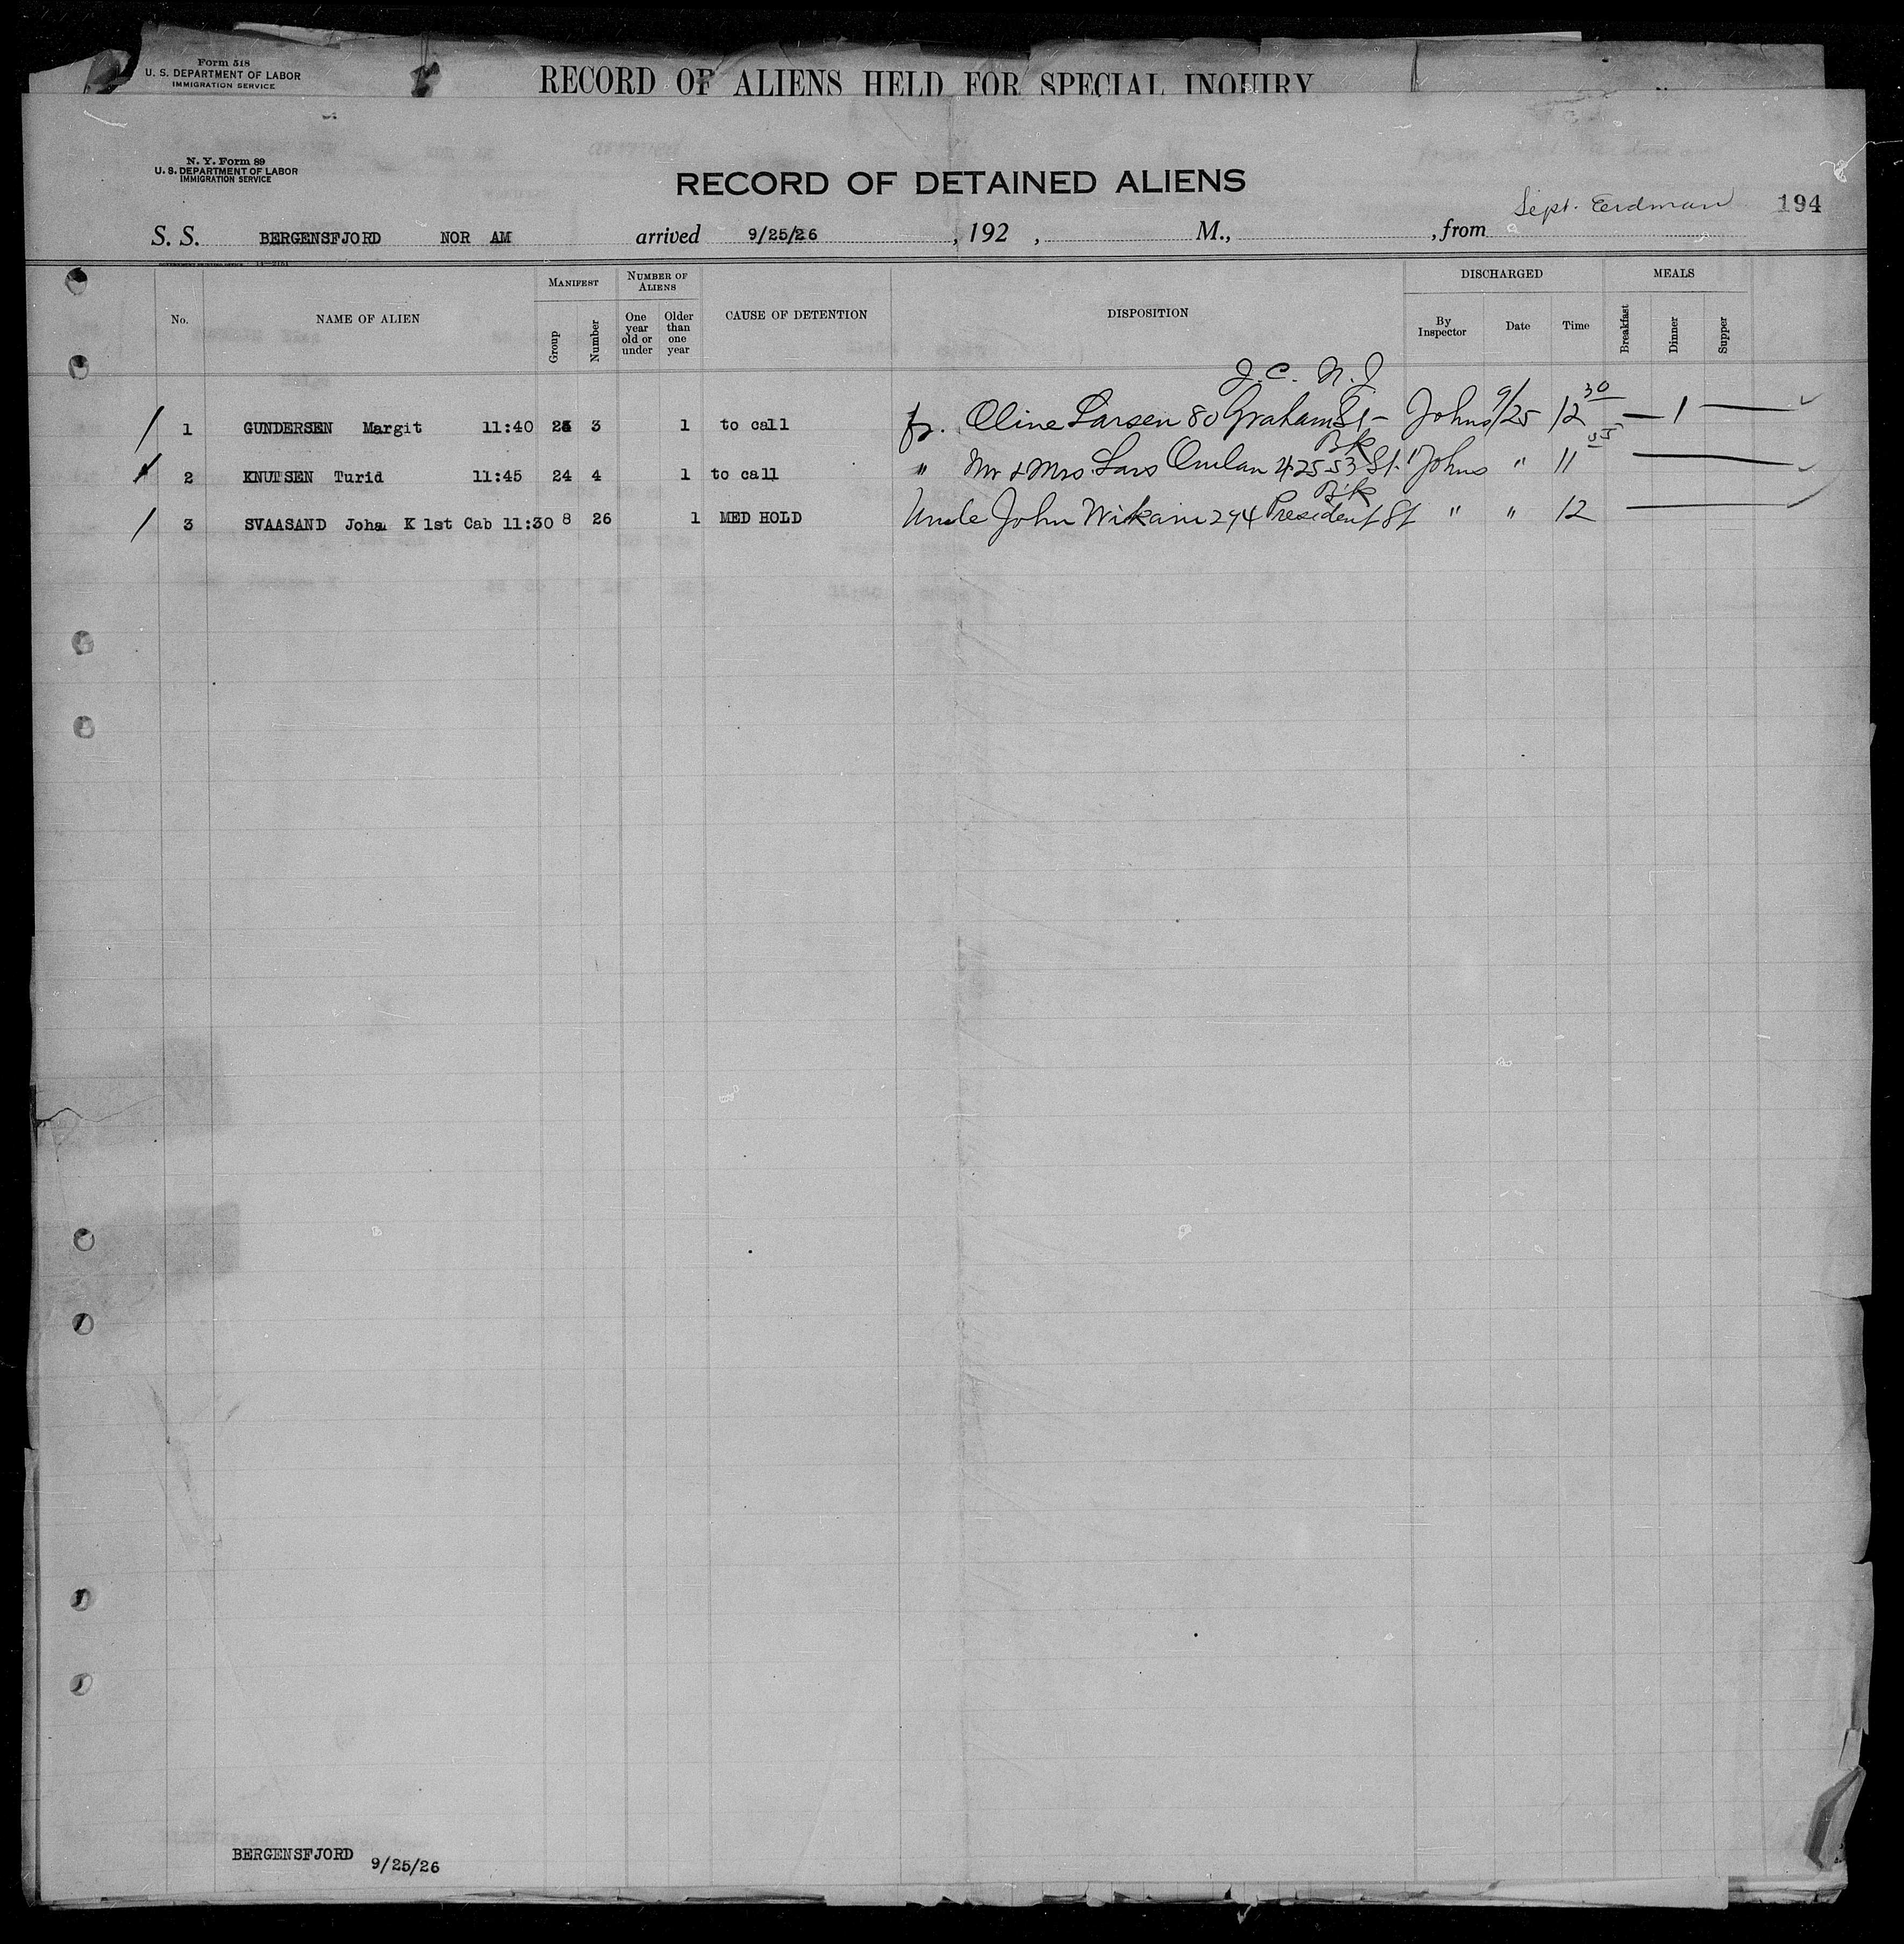 Form 518
U. S. DEPARTMENT OF LABOR
IMMIGRATION SERVICE
RECORD OF ALIENS HELD FOR SPECIAL INQUIRY
N. Y. Form 89
U. S. DEPARTMENT OF LABOR
IMMIGRATION SERVICE
RECORD OF DETAINED ALIENS
Sept. Erdman 194
S. S. BERGENSFJORD NOR AM arrived 9/25/26, 192 , M., , from
GOVERNMENT PRINTING OFFICE 11—2151
No. NAME OF ALIEN MANIFEST Group Number NUMBER OF ALIENS One year old or under Older than one year CAUSE OF DETENTION DISPOSITION DISCHARGED By Inspector Date Time MEALS Breakfast Dinner Supper
J. C. N. J
1 GUNDERSEN Margit 11:40 3 1 to call fr. Oline Larsen 80 Graham St — Johns 9/25 12 30 — 1 —
Bk
2 KNUTSEN Turid 11:45 24 4 1 to call " Mr & Mrs. Lars 425 53 St. Johns " 11
Bk
3 SVAASAND K 1st Cab 11:30 8 26 1 MED HOLD Uncle John 294 President St " " 12 —
BERGENSFJORD 9/25/26